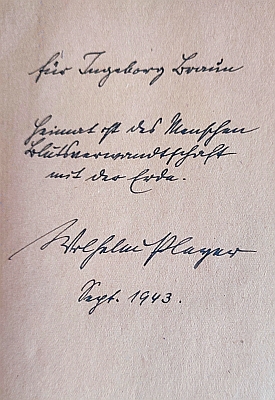 für Ingeborg Braun
Heimat ist des Menschen
Blutsverwandtschaft
mit der Erde.
Wilhelm Pleyer
Sept. 1943.